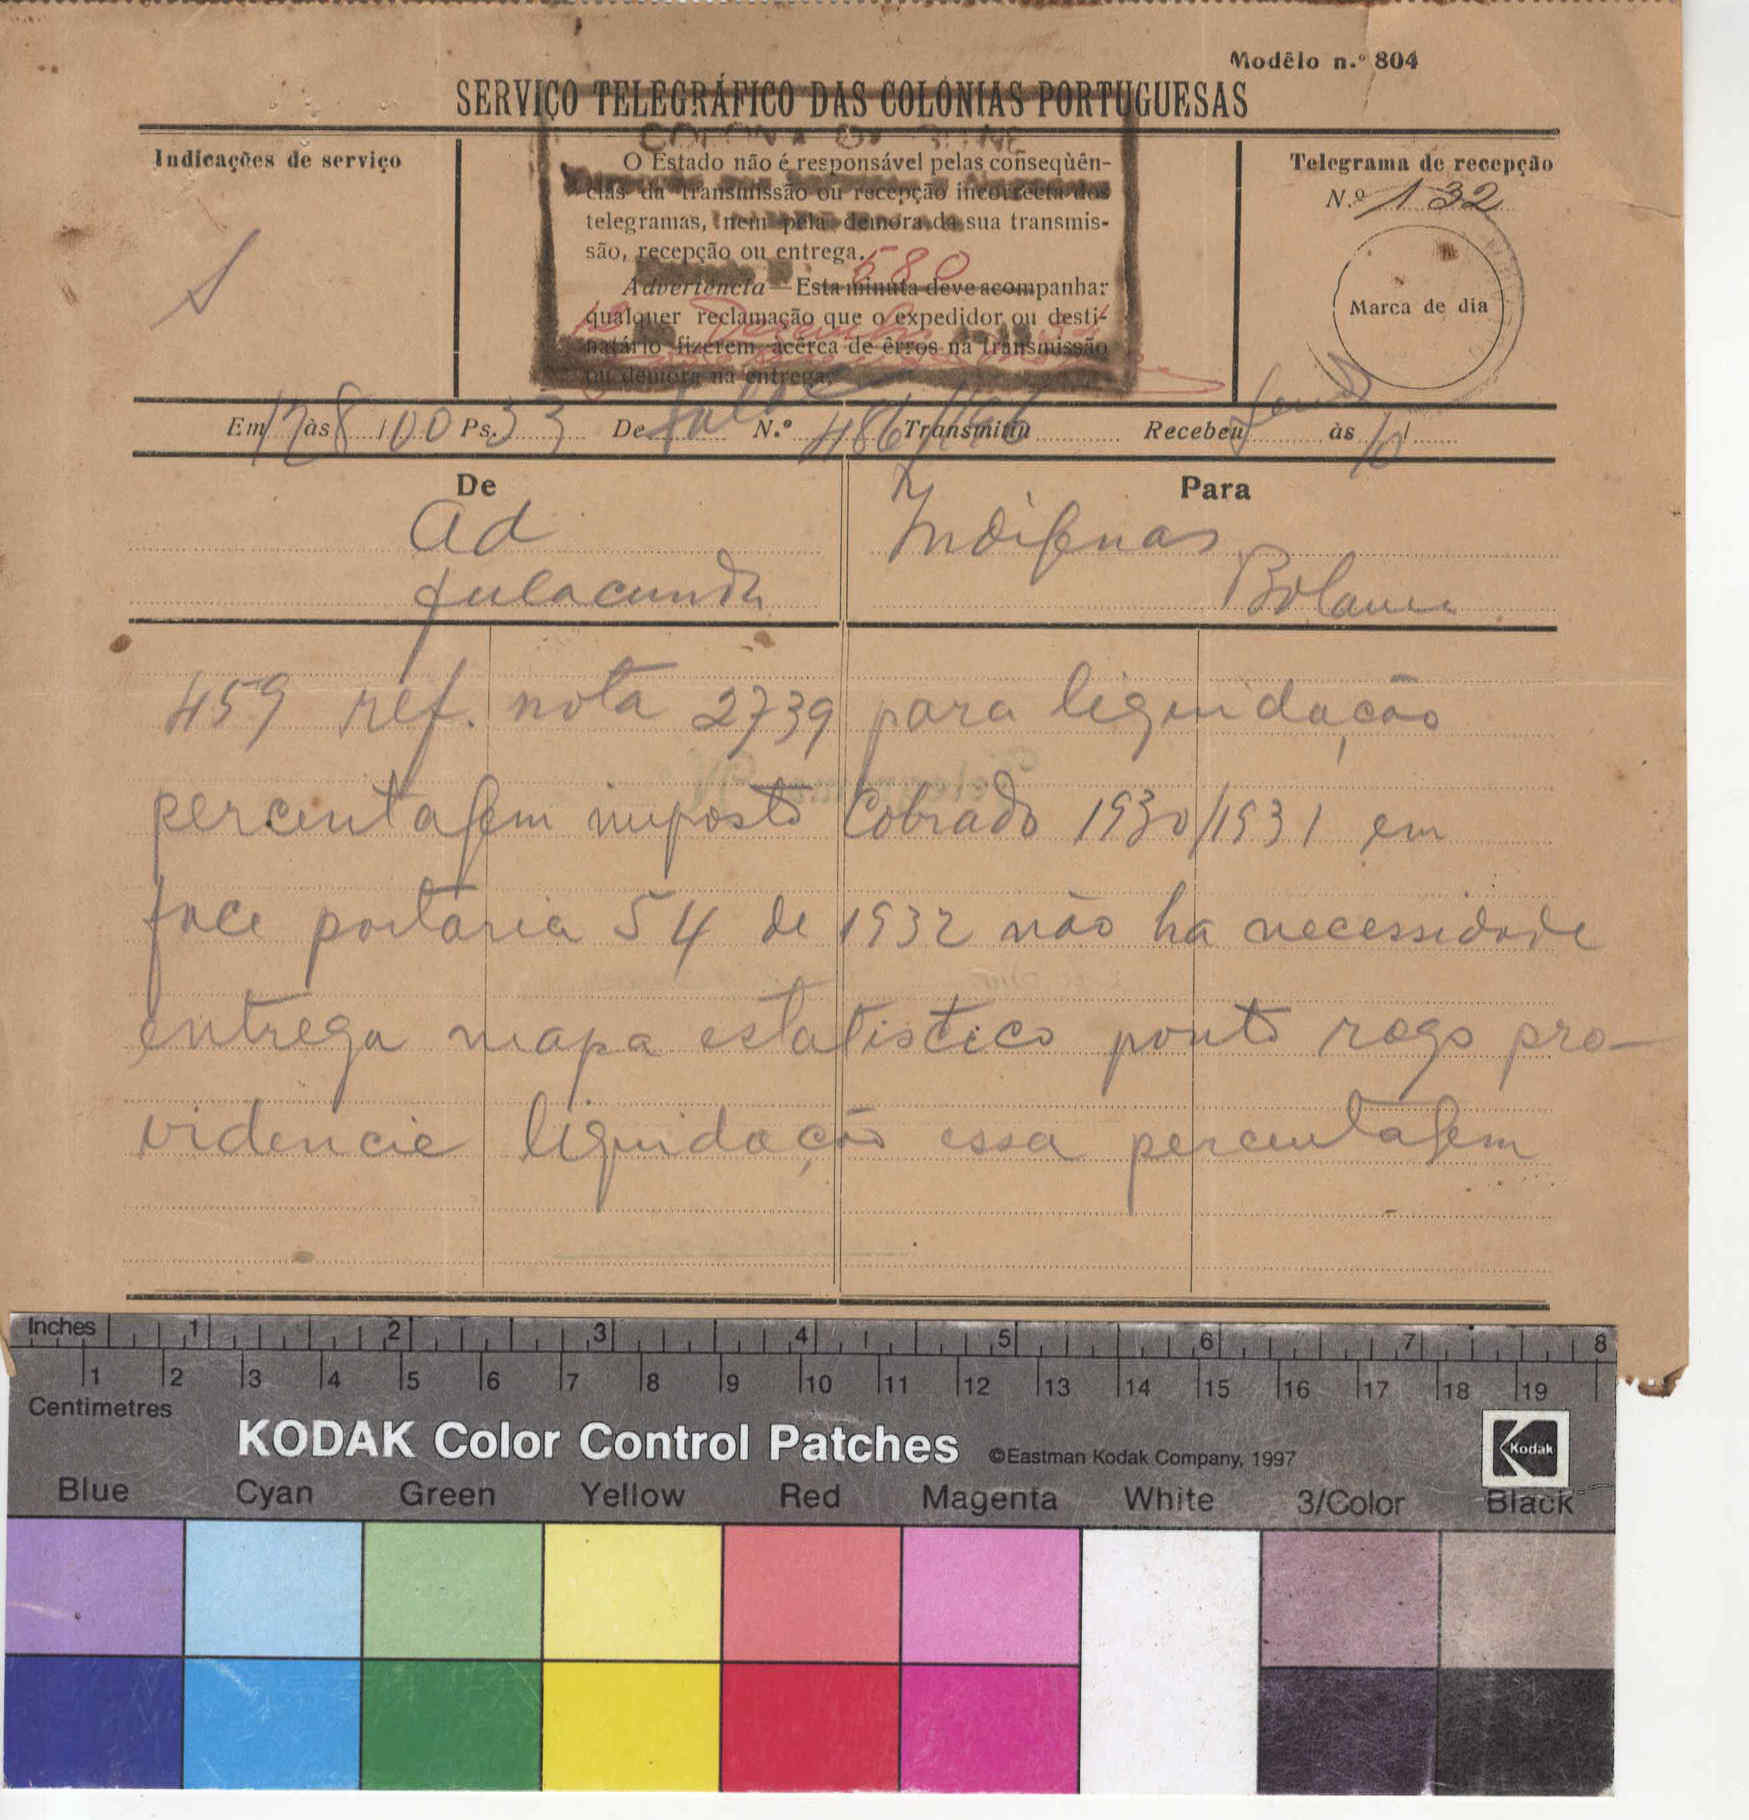 Modêlo n.º 804
SERVIÇO TELEGRÁFICO DAS COLÓNIAS PORTUGUESAS
Indicações de serviço
S
O Estado não é responsável pelas conseqùên-
cias da transmissão ou recepção incorrecta dos
telegramas, nem pela demora da sua transmis-
são, recepção ou entrega.
580
Advertência — Esta minuta deve acompanhar
qualquer reclamação que o expedidor ou desti-
natário fizerem, acêrca de êrros na transmissão
ou demora na entrega.
Telegrama de recepção
N.º 132
Marca de dia
Em 12 às 8 / 00 Ps. 33 De N.º 486 Transmitiu Recebeu às 10 /
De
Ad
fulacunda
Para
Indigenas
Bolama
459 ref. nota 2739 para liquidação
percentagem imposto cobrado 1930/1931 em
face portaria 54 de 1932 não ha necessidade
entrega mapa estatistico ponto rogo pro-
videncie liquidação essa percentagem
Inches 1 2 3 4 5 6 7 8
1 2 3 4 5 6 7 8 9 10 11 12 13 14 15 16 17 18 19
Centimetres
KODAK Color Control Patches ©Eastman Kodak Company, 1997
Kodak
Blue Cyan Green Yellow Red Magenta White 3/Color Black